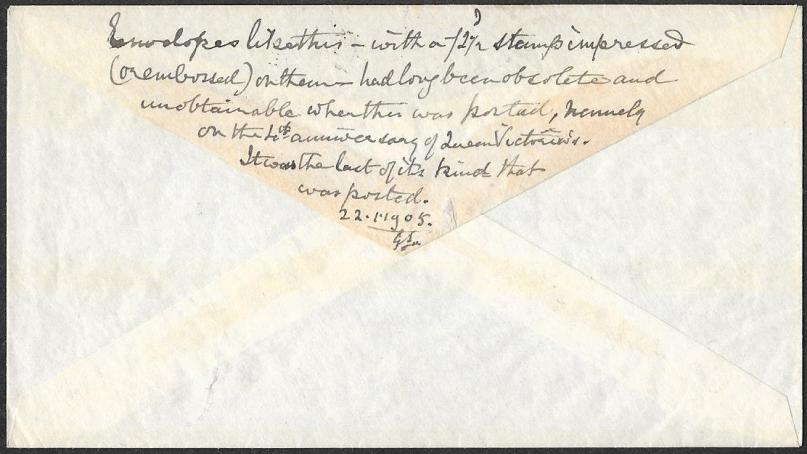 Envelopes like this – with a stamp impressed
(or embossed) on them – had long been obsolete and
unobtainable when this was posted, namely
on the 4th anniversary of Queen Victoria's.
It was the last of its kind that
was posted.
22.1.1905.